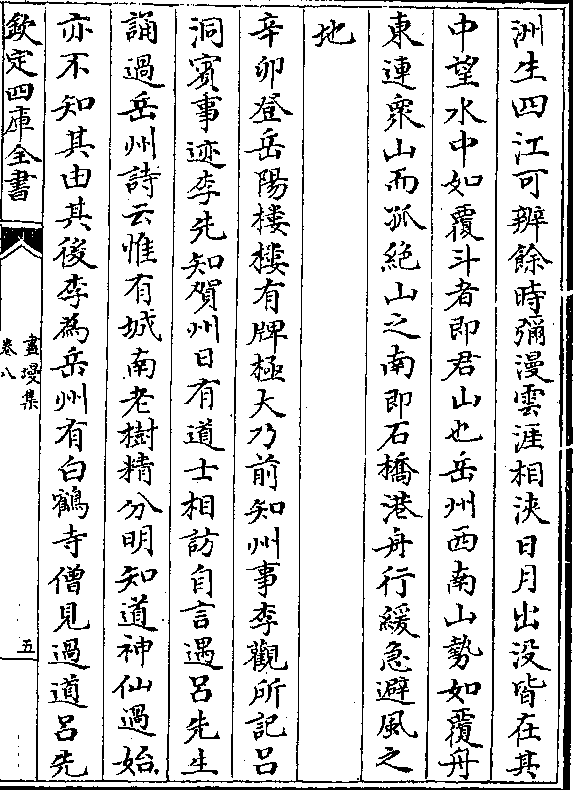 洲生四江可辨餘時彌漫雲涯相浹日月出没皆在其
中望水中如覆斗者即君山也岳州西南山勢如覆舟
東連衆山而孤絶山之南即石橋港舟行緩急避風之
地
辛卯登岳陽樓樓有牌極大乃前知州事李觀所記呂
洞賓事迹李先知賀州日有道士相訪自言遇呂先生
誦過岳州詩云惟有城南老樹精分明知道神仙過始
亦不知其由其後李為岳州有白鶴寺僧見過道呂先
欽定四庫全書
畫墁集
卷八
五